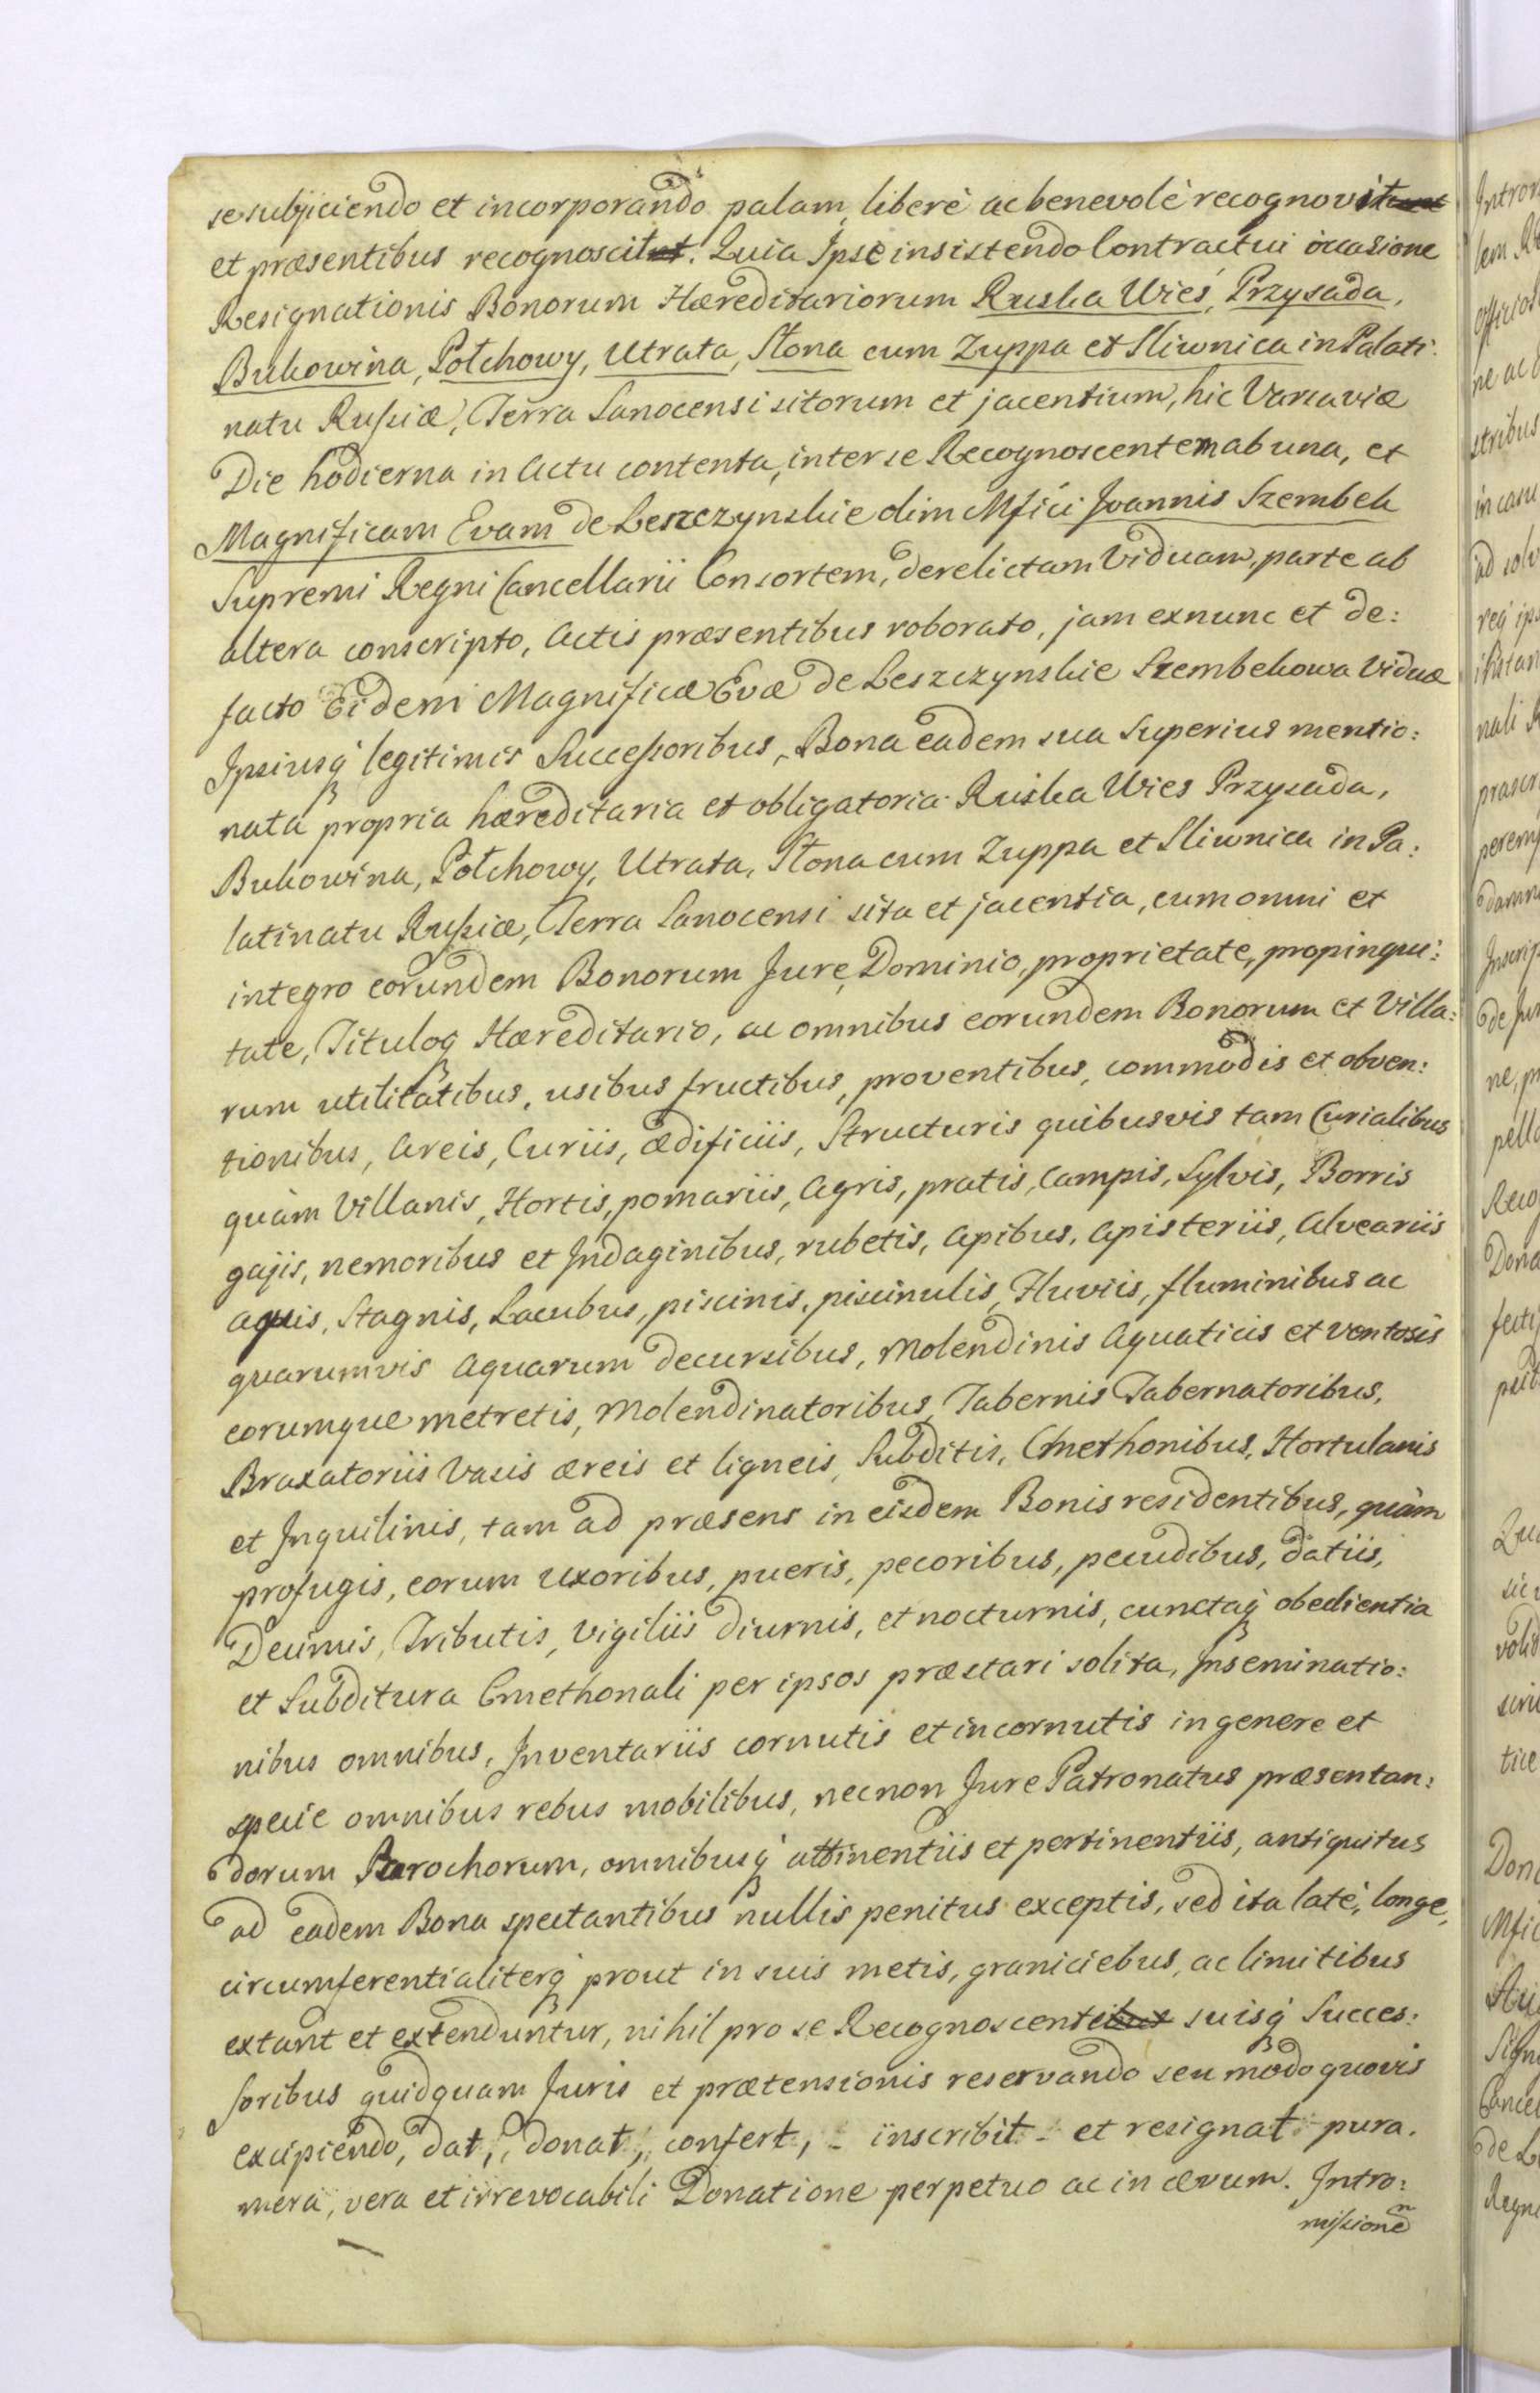 se subjiciendo et incorporando palam, liberè ac benevolè recognovit
et præsentibus recognoscit. Quia Ipse insistendo Contractui occasione
Resignationis Bonorum Hæreditariorum Ruska Wieś, Przysada,
Bukowina, Połchowy, Utrata, Słona cum Zuppa et Sliwnica in Palati:
natu Rußiæ, Terra Sanocensi sitorum et jacentium, hic Varsaviæ
Die hodierna in Actu contenta, inter se Recognoscentem ab una, et
Magnificam Evam de Leszczynskie olim Mfici Joannis Szembek
Supremi Regni Cancellarii Consortem, derelictam Viduam, parte ab
altera conscripto, Actis præsentibus roborato, jam exnunc et de:
facto Eidem Magnificæ Evæ de Leszczynskie Szembekowa Viduæ
Ipsiusq́ legitimis Succeßoribus, Bona eadem sua Superius mentio:
nata propria hæreditaria et obligatoria Ruska Wies Przysada,
Bukowina, Połchowy, Utrata, Słona cum Zuppa et Sliwnica in Pa:
latinatu Rußiæ, Terra Sanocensi sita et jacentia, cum omni et
integro eorundem Bonorum Jure, Dominio, proprietate, propinqui:
tate, Tituloq Hæreditario, ac omnibus eorundem Bonorum et Villa:
rum utilitatibus, usibus fructibus, proventibus, commodis et obven:
tionibus, Areis, Curiis, ædificiis, Structuris quibusvis tam Curialibus
quàm Villanis, Hortis, pomariis, Agris, pratis, Campis, Sylvis, Borris
gajis, nemoribus et Indaginibus, rubetis, Apibus, Apisteriis, Alveariis
aquis, Stagnis, Lacubus, piscinis, piscinulis, Fluviis, fluminibus ac
quarumvis Aquarum decursibus, Molendinis Aquaticis et ventosis
eorumque metretis, Molendinatoribus, Tabernis Tabernatoribus,
Braxatoriis Vasis æreis et ligneis, Subditis, Cmethonibus, Hortulanis
et Inquilinis, tam ad præsens in eisdem Bonis residentibus, quàm
profugis, eorum uxoribus, pueris, pecoribus, pecudibus, datiis,
Decimis, Tributis, vigiliis diurnis, et nocturnis, cunctaq́ obedientia
et Subditura Cmethonali per ipsos præstari solita, Inseminatio:
nibus omnibus, Inventariis cornutis et incornutis in genere et
specie omnibus rebus mobilibus, necnon Jure Patronatus præsentan:
dorum Parochorum, omnibusq́ attinentiis et pertinentiis, antiquitus
ad eadem Bona spectantibus nullis penitus exceptis, sed ita latè, longe,
circumferentialiterq́ prout in suis metis, graniciebus, ac limitibus
extant et extenduntur, nihil pro se Recognoscente suisq́ Succes:
soribus quidquam Juris et prætensionis reservando seu modo quovis
excipiendo, dat, donat, confert, - inscribit - et resignat pura.
mera, vera et irrevocabili Donatione perpetuo ac in ævum. Intro:
mißionen